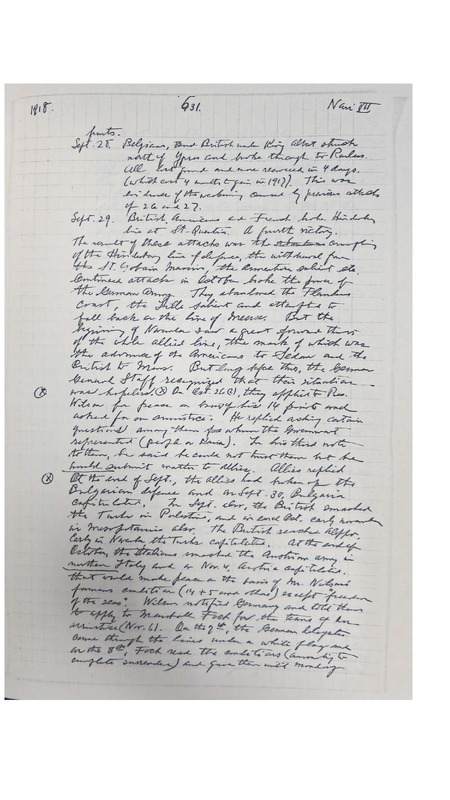 1918.
631.
Navi VII
fronts.
Sept. 28. Belgians, and British under King Albert struck
north of Ypres and broke through to Roulers.
All lost ground and more recovered in 4 days.
(Which cost 4 months to gain in 1917). This was
evidence of the weakening caused by previous attacks
of 26 and 27.
Sept. 29. British, Americans and French broke Hindenburg
line at St. Quentin. A fourth victory.
The result of these attacks was the crumpling
of the Hindenburg line of defense, the withdrawal from
the St. Gobain Massiv, the Armentiere salient etc.
Continued attacks in October broke the power of
the German Army. They abandoned the Flanders
Coast, the Lille salient and attempted to
fall back on the line of Meuse. But the
beginning of November saw a great forward thrust
of the whole allied line, the mark of which was
the advance of the Americans to Sedan and the
British to Mons. But long before this, the German
General Staff recognized that their situation
was hopeless. (X) On Oct. they applied to Pres.
Wilson for peace on basis of his 14 points and
asked for an armistice. He replied asking certain
questions among them for whom the Government
represented (people or Kaiser). In his third note
to them, he said he could not trust them but he
would submit matter to Allies. Allies replied
(X) At the end of Sept., the allies had broken up the
Bulgarian defense and on Sept. 30, Bulgaria
capitulated. In Sept. also, the British smashed
the Turks in Palestine, and in end Oct. early November
in Mesopotamia also. The British reached Aleppo.
Early in November the Turks capitulated. At the end of
October, the Italians smashed the Austrian army in
northern Italy and on Nov. 4, Austria capitulates.
that would make peace on the basis of Mr. Wilson's
famous conditions (14 + 5 and thus) except freedom
of the seas. Wilson notified Germany and told them
to apply to Marshall Foch for the terms of an
armistice (Nov. 6). On the 7th, the German delegates
came through the lines under a white flag and
on the 8th, Foch read the conditions (amounting to
complete surrender) and gave them until Monday